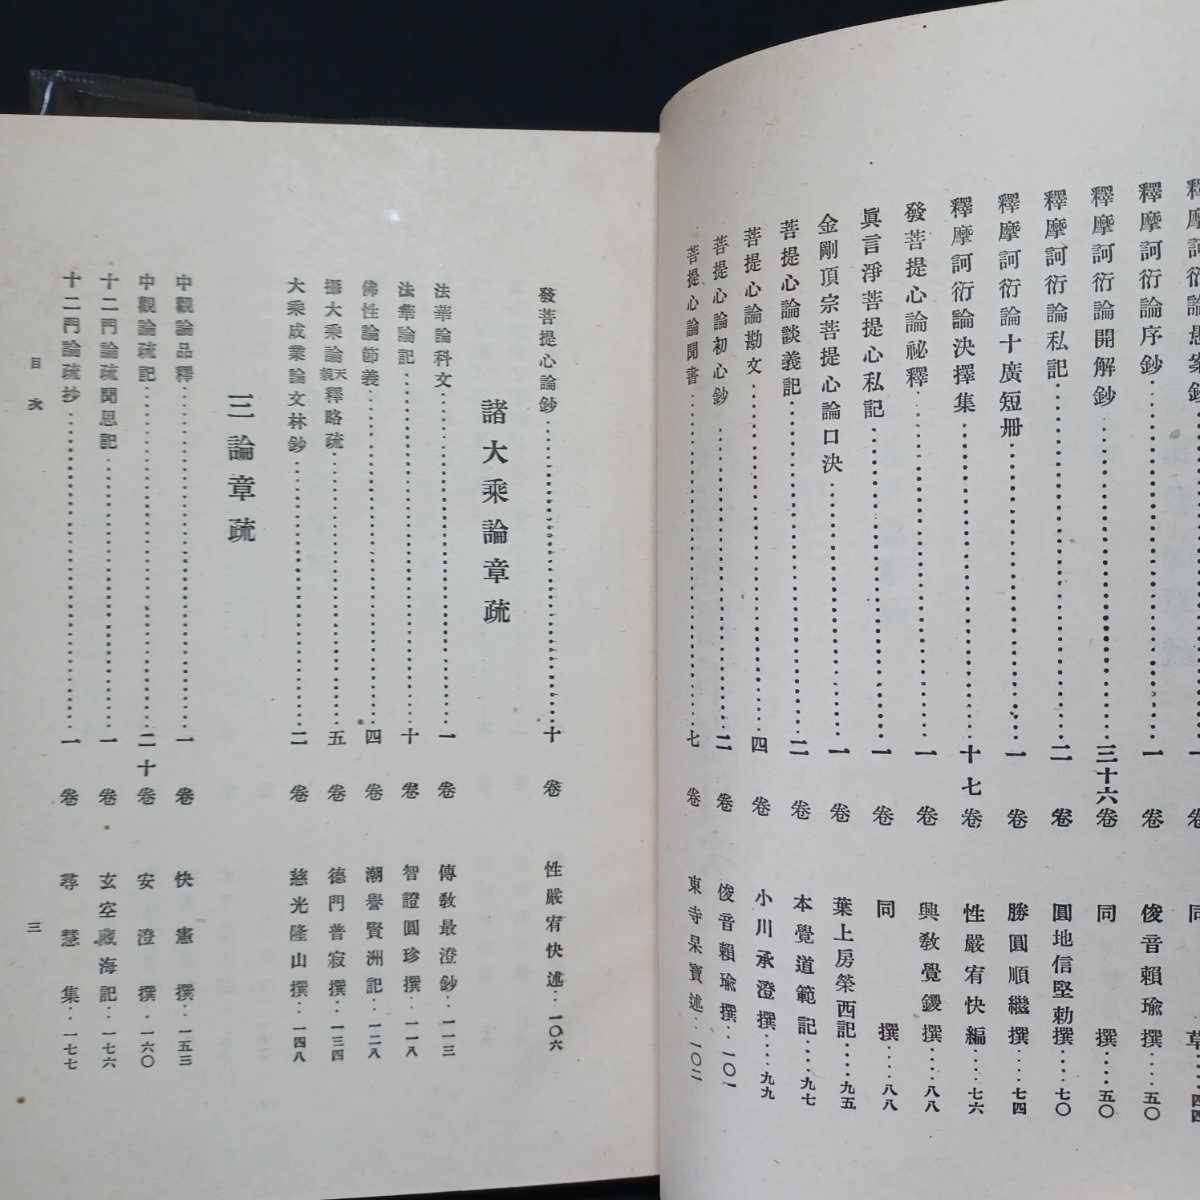 釋摩訶衍論愚案鈔……一卷 同 草……四四
釋摩訶衍論序鈔……一卷 俊音賴瑜撰……五〇
釋摩訶衍論開解鈔……三十六卷 同 撰……五〇
釋摩訶衍論私記……二卷 圓地信堅勅撰……七〇
釋摩訶衍論十廣短册……一卷 勝圓順繼撰……七四
釋摩訶衍論決擇集……十七卷 性嚴宥快編……七六
發菩提心論祕釋……一卷 興敎覺鑁撰……八八
眞言淨菩提心私記……一卷 同 撰……八八
金剛頂宗菩提心論口決……一卷 葉上房榮西記……九五
菩提心論談義記……二卷 本覺道範記……九七
菩提心論勘文……四卷 小川承澄撰……九九
菩提心論初心鈔……二卷 俊音賴瑜撰……一〇一
菩提心論聞書……七卷 東寺杲寶述……一〇二
發菩提心論鈔……十卷 性嚴宥快述……一〇六
諸大乘論章疏
法華論科文……一卷 傳敎最澄鈔……一一三
法華論記……十卷 智證圓珍撰……一一八
佛性論節義……四卷 潮譽賢洲記……一二八
攝大乘論天親釋略疏……五卷 德門普寂撰……一三四
大乘成業論文林鈔……二卷 慈光隆山撰……一四八
三論章疏
中觀論品釋……一卷 快憲撰……一五三
中觀論疏記……二十卷 安澄撰……一六〇
十二門論疏聞思記……一卷 玄空藏海記……一七六
十二門論疏抄……一卷 尋慧集……一七七
目次
三